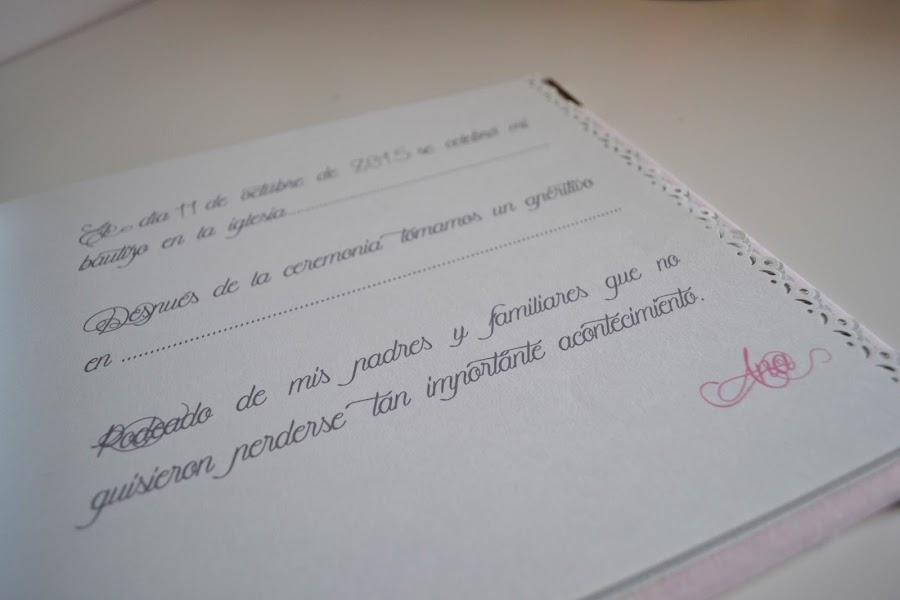 El día 11 de octubre de 2015 se celebra mi
bautizo en la iglesia..............................
Después de la ceremonia tomamos un aperitivo
en ..............................................................
Rodeado de mis padres y familiares que no
quisieron perderse tan importante acontecimiento.
Ana